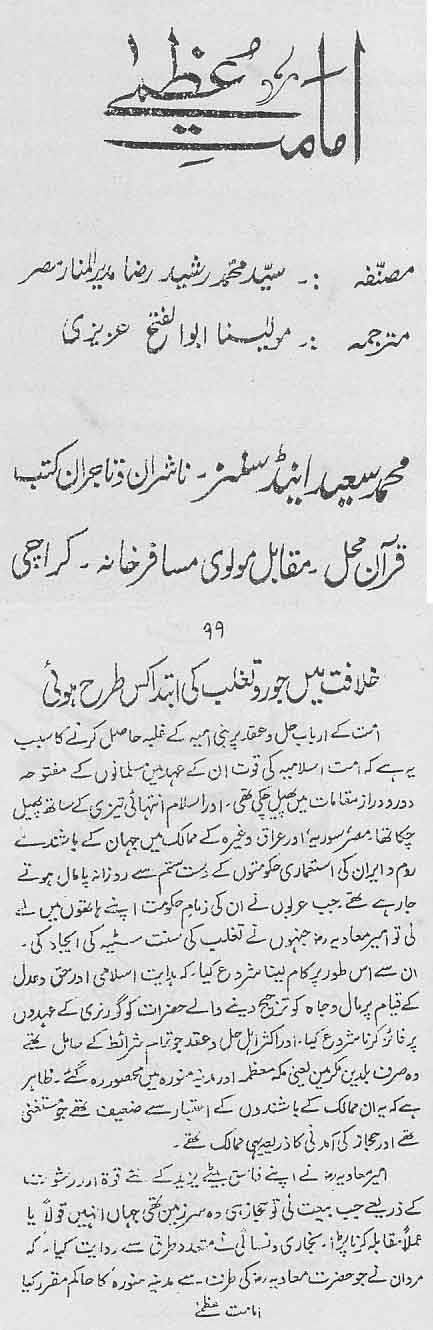 امامت عظمیٰ
مصنّفہ :۔ سیّد محمد رشید رضا مدیر المنار مصر
مترجمہ :۔ مولینا ابوالفتح عزیزی
محمد سعید اینڈ سنز۔ ناشران و تاجران کتب
قرآن محل۔ مقابل مولوی مسافر خانہ۔ کراچی
۹۹
خلافت میں جور و تغلب کی ابتدا کس طرح ہوئی
امت کے ارباب حل و عقد پر بنی امیہ کے غلبہ حاصل کرنے کا سبب
یہ ہے کہ امت اسلامیہ کی قوت ان کے عہد میں مسلمانوں کے مفتوحہ
دور و دراز مقامات میں پھیل چکی تھی۔ اور اسلام انتہائی تیزی کے ساتھ پھیل
چکا تھا مصر، سوریہ، اور عراق وغیرہ کے ممالک میں جہان کے باشندے
روم و ایران کی استعماری حکومتوں کے دست ستم سے روزانہ پامال ہوتے
جا رہے تھے، جب عربوں نے ان کی زمام حکومت اپنے ہاتھوں میں لے
لی تو امیر معاویہ رض جنہوں نے تغلب کی سنت سئیہ کی ایجاد کی۔
ان سے اس طور پر کام لینا شروع کیا۔ کہ ہدایت اسلامی اور حق و عدل
کے قیام پر مال و جاہ کو ترجیح دینے والے حضرات کو گورنری کے عہدوں
پر فائز کرنا شروع کیا۔ اور اکثر اہل حل و عقد جو تمام شرائط کے حامل تھے
وہ صرف بلدین مکرمین یعنی مکہ معظمہ اور مدینہ منورہ میں محصور رہ گئے۔ ظاہر
ہے کہ یہ ان ممالک کے باشندوں کے اعتبار سے ضعیف تھے جو مستغنی
تھے اور حجاز کی آمدنی کا ذریعہ یہی ممالک تھے۔
امیر معاویہ رض نے اپنے فاسق بیٹے یزید کے لئے قوۃ اور رشوت
کے ذریعے جب بیعت لی تو حجاز ہی وہ سرزمین تھی جہاں انہیں قولاً یا
عملاً مقابلہ کرنا پڑا۔ بخاری و نسائی نے متعدد طرق سے روایت کیا۔ کہ
مردان نے جو حضرت معاویہ رض کی طرف سے مدینہ منورہ کا حاکم مقرر کیا
امامت عظمیٰ